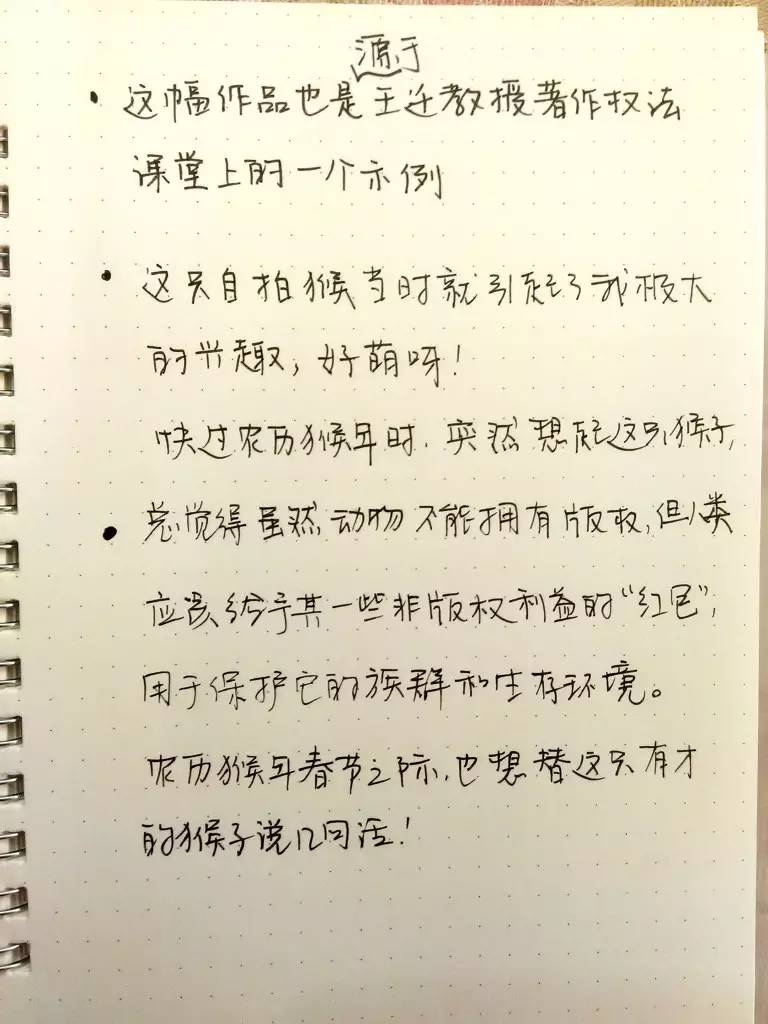 源于
• 这幅作品也是王迁教授著作权法
课堂上的一个示例
• 这只自拍猴当时就引起了我极大
的兴趣，好萌呀！
快过农历猴年时，突然想起这只猴子，
• 总觉得虽然动物不能拥有版权，但人类
应该给予其一些非版权利益的“红包”，
用于保护它的族群和生存环境。
农历猴年春节之际，也想替这只有才
的猴子说几句话！